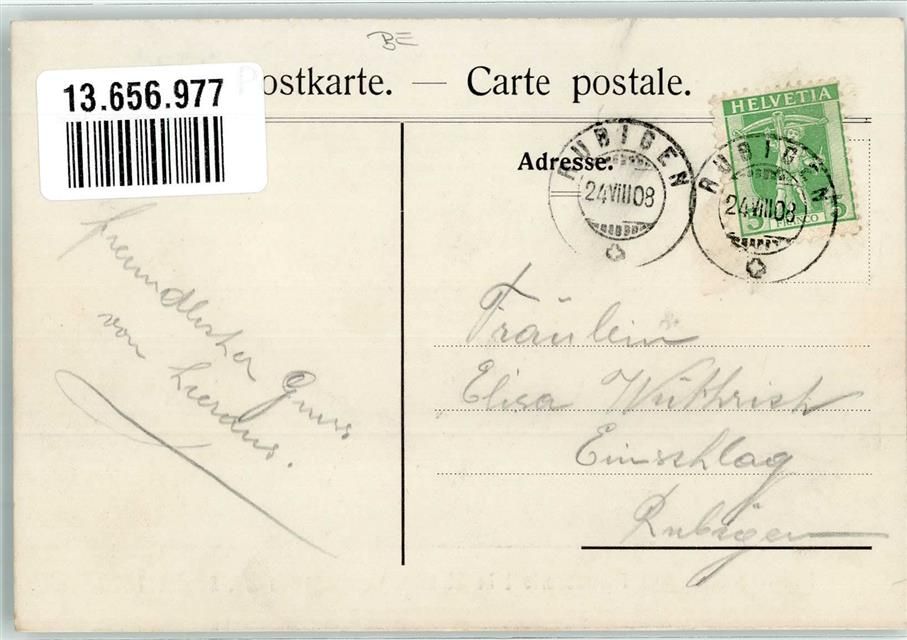 BE
13.656.977
Postkarte. — Carte postale.
HELVETIA
5 FRANCO 5
Adresse.
RUBIGEN
24 VIII 08
RUBIGEN
24 VIII 08
freundlicher Gruss
von Lieraus.
Fräulein
Elisa Wüthrich
Einschlag
Rubigen